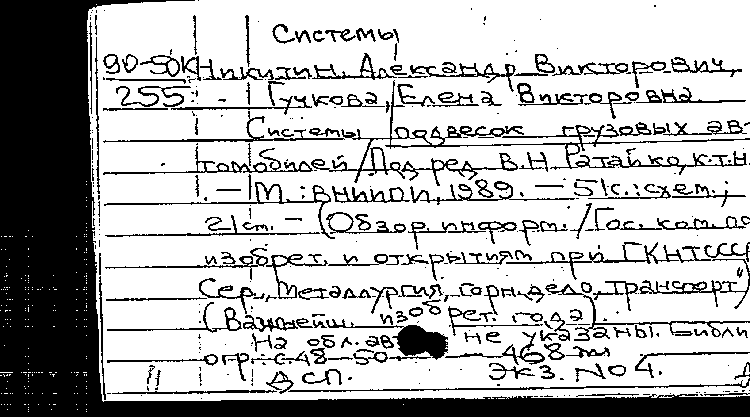 Системы
90-50К Никитин, Александр Викторович,
255 Гучкова, Елена Викторовна.
Системы подвесок грузовых ав-
томобилей / Под ред. В.Н. Ратайко, к.т.н.
. — М.: ВНИИПИ, 1989. — 51с.: схем.;
21см. — (Обзор. информ. / Гос. ком. по
изобрет. и открытиям при ГКНТ СССР
Сер., Металлургия, горн. дело, транспорт")
(Важнейш. изобрет. года).
На обл. авт не указаны. Библи
огр.: с.48-50 468
ДСП. Экз. №4.